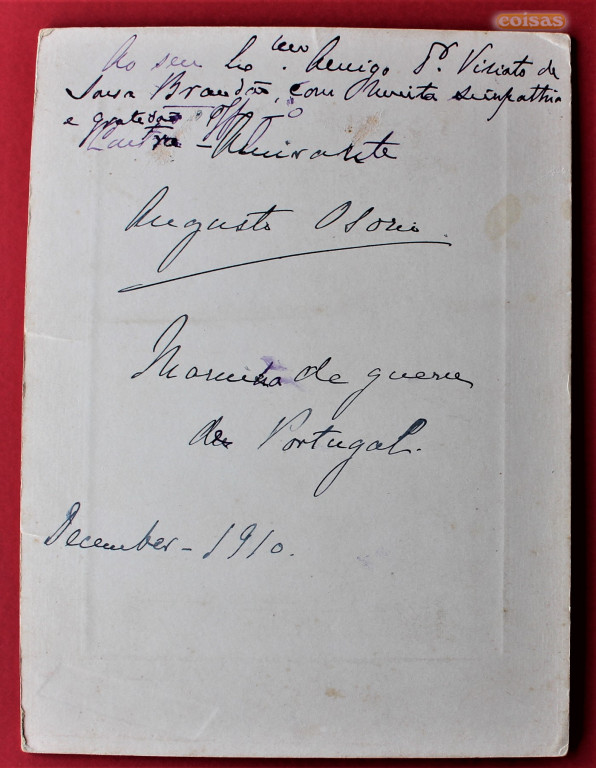 coisas
Ao seu Amigo Sr. Viriato de
Sousa Brandão, com Muita simpathia
e gratidão
Contra-Almirante
Augusto Osorio.
Marinha de guerra
de Portugal.
December - 1910.